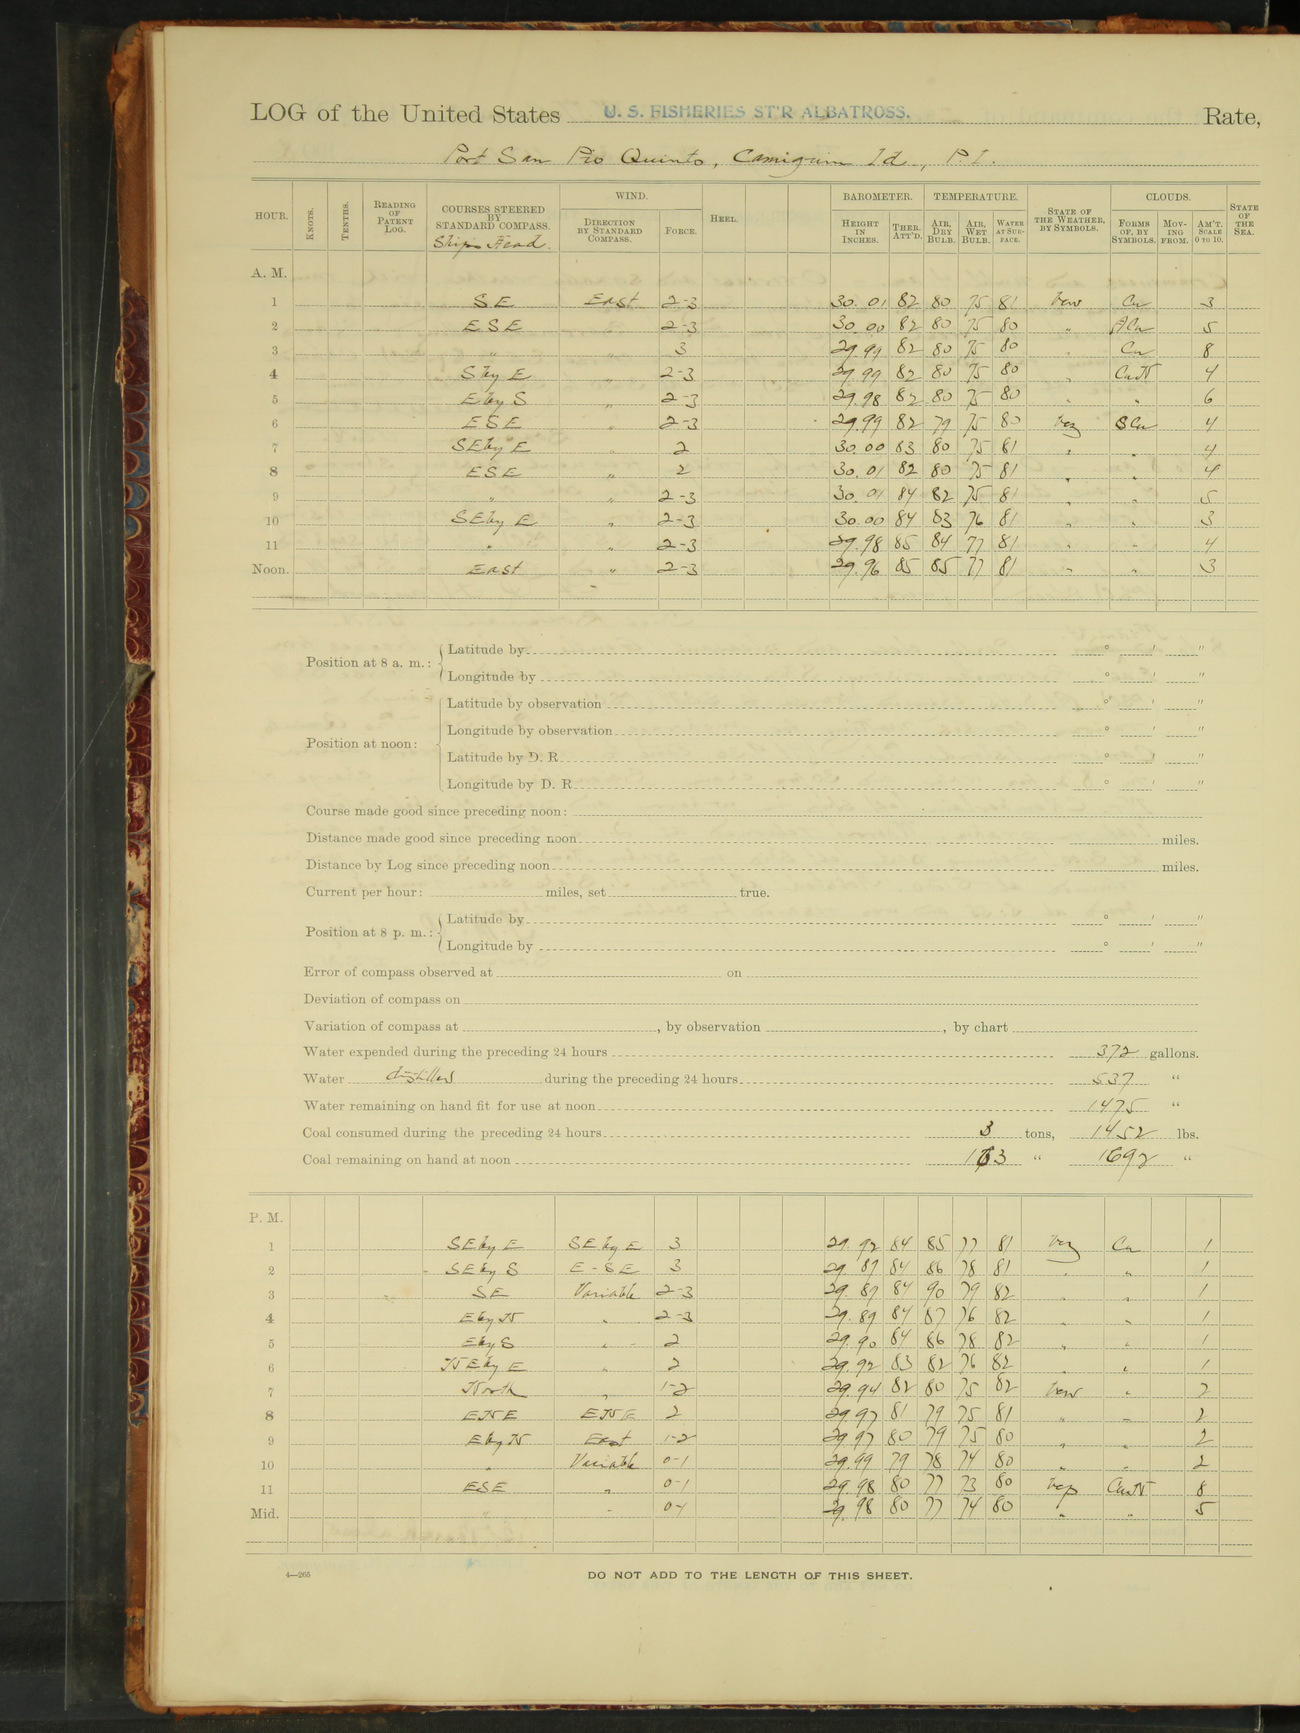 LOG of the United States U. S. FISHERIES ST'R ALBATROSS. Rate,
Port San Pio Quinto, Camiguin Id., P.I.
HOUR. KNOTS. TENTHS. READING OF PATENT LOG. COURSES STEERED BY STANDARD COMPASS. Ships Head. WIND. DIRECTION BY STANDARD COMPASS. FORCE. HEEL. BAROMETER. HEIGHT IN INCHES. THER. ATT'D. TEMPERATURE. AIR, DRY BULB. AIR, WET BULB. WATER AT SURFACE. STATE OF THE WEATHER, BY SYMBOLS. CLOUDS. FORMS OF, BY SYMBOLS. MOVING FROM. AM'T. SCALE 0 TO 10. STATE OF THE SEA.
A. M.
1 SE East 2-3 30.01 82 80 75 81 Cu 3
2 ESE 2-3 30.00 82 80 75 80 " ACu 5
3 " " 3 29.99 82 80 75 80 " Cu 8
4 S by E " 2-3 29.99 82 80 75 80 " CuN 4
5 E by S " 2-3 29.98 82 80 75 80 " " 6
6 ESE " 2-3 29.99 82 79 75 80 SCu 4
7 SE by E " 2 30.00 83 80 75 81 " " 4
8 ESE " 2 30.01 82 80 75 81 " " 4
9 " " 2-3 30.01 84 82 75 81 " " 5
10 SE by E " 2-3 30.00 84 83 76 81 " " 3
11 " " 2-3 29.98 85 84 77 81 " " 4
Noon. East " 2-3 29.96 85 85 77 81 " " 3
Position at 8 a. m.: Latitude by ° ' "
Longitude by ° ' "
Position at noon: Latitude by observation ° ' "
Longitude by observation ° ' "
Latitude by D. R. ° ' "
Longitude by D. R. ° ' "
Course made good since preceding noon:
Distance made good since preceding noon miles.
Distance by Log since preceding noon miles.
Current per hour: miles, set true.
Position at 8 p. m.: Latitude by ° ' "
Longitude by ° ' "
Error of compass observed at on
Deviation of compass on
Variation of compass at , by observation , by chart
Water expended during the preceding 24 hours 372 gallons.
Water distilled during the preceding 24 hours 537 "
Water remaining on hand fit for use at noon 1475 "
Coal consumed during the preceding 24 hours 3 tons, 1452 lbs.
Coal remaining on hand at noon 163 " 1692 "
P. M.
1 SE by E SE by E 3 29.92 84 85 77 81 Cu 1
2 SE by S E-SE 3 29.87 84 86 78 81 " " 1
3 SE Variable 2-3 29.87 84 90 79 82 " " 1
4 E by N " 2-3 29.89 84 87 76 82 " " 1
5 E by S " 2 29.90 84 86 78 82 " " 1
6 NE by E " 2 29.92 83 82 76 82 " " 1
7 North " 1-2 29.94 82 80 75 82 " 2
8 ENE ENE 2 29.97 81 79 75 81 " " 2
9 E by N East 1-2 29.97 80 79 75 80 " " 2
10 " Variable 0-1 29.99 79 78 74 80 " " 2
11 ESE " 0-1 29.98 80 77 73 80 CuN 8
Mid. " " 0-1 29.98 80 77 74 80 " " 5
4—265
DO NOT ADD TO THE LENGTH OF THIS SHEET.